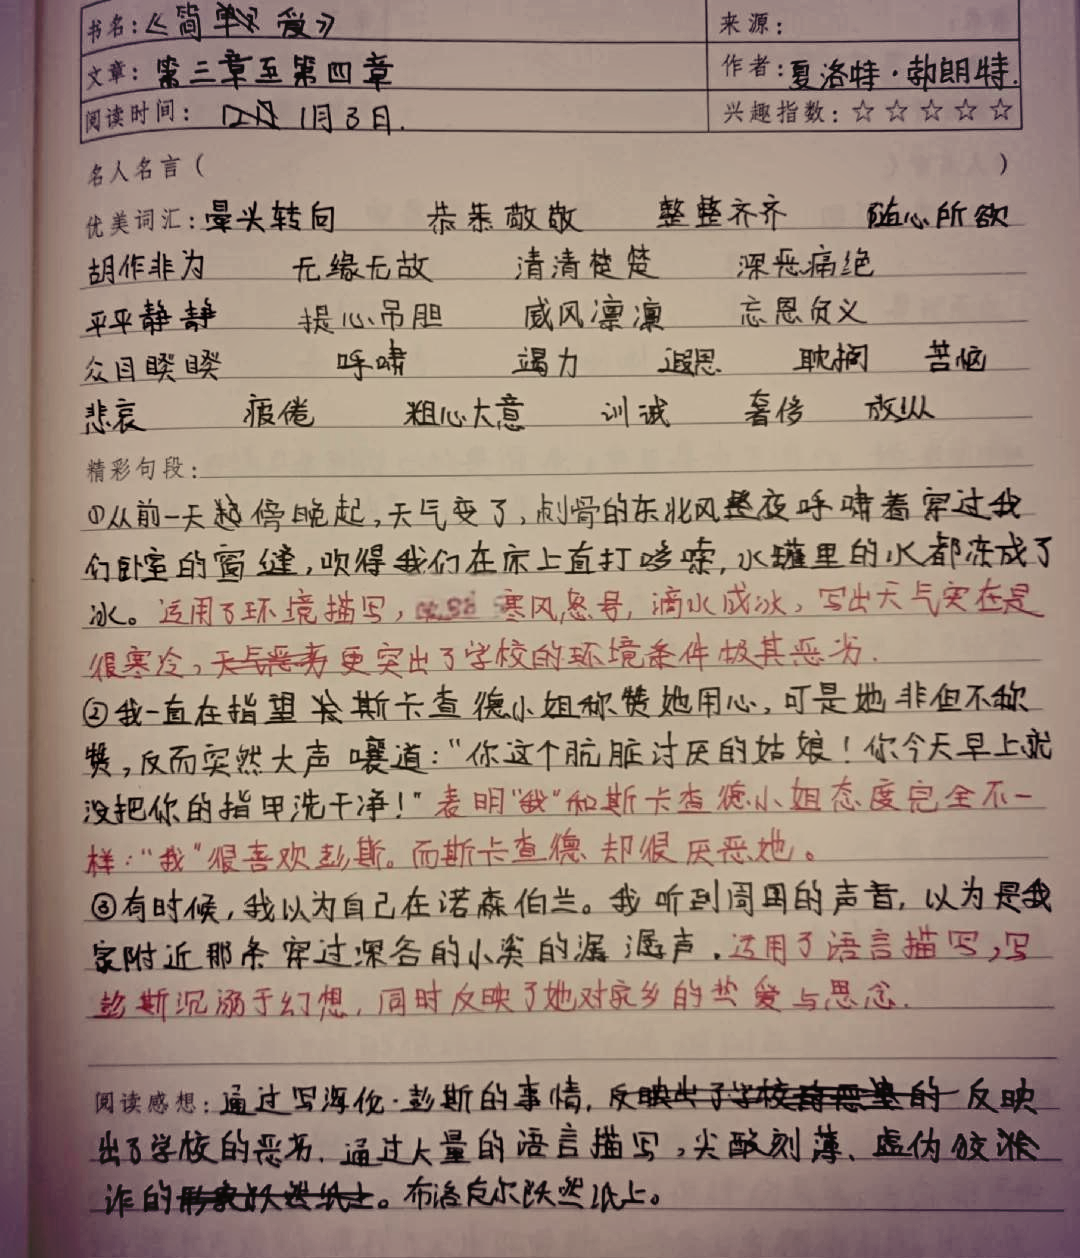 书名：《简 爱》 来源：
文章：第三章至第四章 作者：夏洛特·勃朗特.
阅读时间： 1月3日. 兴趣指数：☆☆☆☆☆
名人名言（ ）
优美词汇：晕头转向 恭恭敬敬 整整齐齐 随心所欲
胡作非为 无缘无故 清清楚楚 深恶痛绝
平平静静 提心吊胆 威风凛凛 忘恩负义
众目睽睽 呼啸 竭力 遐思 耽搁 苦恼
悲哀 疲倦 粗心大意 训诫 奢侈 放纵
精彩句段：
①从前一天 傍晚起，天气变了，刺骨的东北风整夜呼啸着穿过我
们卧室的窗缝，吹得我们在床上直打哆嗦，水罐里的水都冻成了
冰。运用了环境描写， 寒风怒号，滴水成冰，写出天气实在是
很寒冷，天气恶劣更突出了学校的环境条件极其恶劣.
②我一直在指望 斯卡查德小姐称赞她用心，可是她非但不称
赞，反而突然大声嚷道：“你这个肮脏讨厌的姑娘！你今天早上就
没把你的指甲洗干净！”表明“我”和斯卡查德小姐态度完全不一
样：“我”很喜欢彭斯。而斯卡查德却很厌恶她。
③有时候，我以为自己在诺森伯兰。我听到周围的声音，以为是我
家附近那条穿过深谷的小溪的潺潺声.运用了语言描写，写
彭斯沉溺于幻想，同时反映了她对家乡的热爱与思念.
阅读感想：通过写海伦·彭斯的事情，反映出了学校 的 反映
出了学校的恶劣.通过大量的语言描写，尖酸刻薄、虚伪狡
诈的 。布洛 尔跃然纸上。